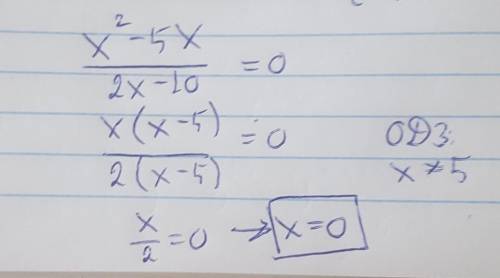 x² - 5x / 2x - 10 = 0
x(x - 5) / 2(x - 5) = 0
ОДЗ:
x ≠ 5
x / 2 = 0 → x = 0